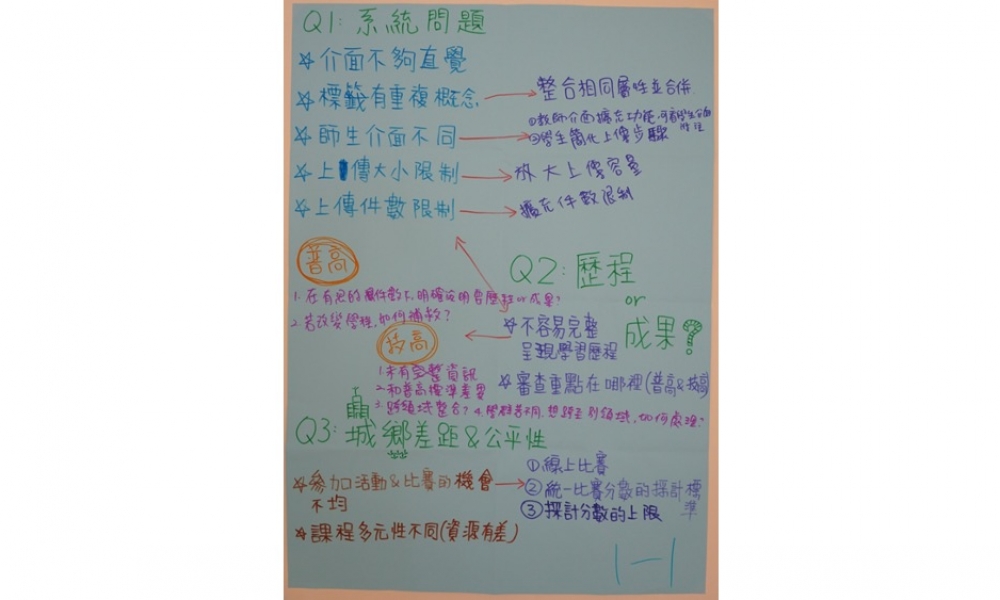 Q1: 系統問題
☆介面不夠直覺
☆標籤有重複概念 → 整合相同屬性並合併
☆師生介面不同 → ①教師介面擴充功能,可看學生介面
②學生簡化上傳步驟
☆上傳大小限制 → 放大上傳容量
☆上傳件數限制 → 擴充件數限制
普高
1. 在有限的屬件數下,明確說明學習歷程or成果?
2. 若改變學程,如何補救?
Q2: 歷程
or
成果?
☆不容易完整
呈現學習歷程
☆審查重點在哪裡(普高&技高)
技高
1.未有完整資訊
2.和普高標準差異
3.跨領域整合? 4.學群若不同,想跨至別領域,如何處理?
Q3: 城鄉差距&公平性
☆參加活動&比賽的機會 → ①線上比賽
不均
②統一比賽分數的採計標準
③採計分數的上限
☆課程多元性不同(資源有差)
1-1